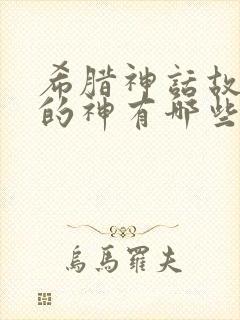 希腊神話故
的神有哪些
烏馬羅夫